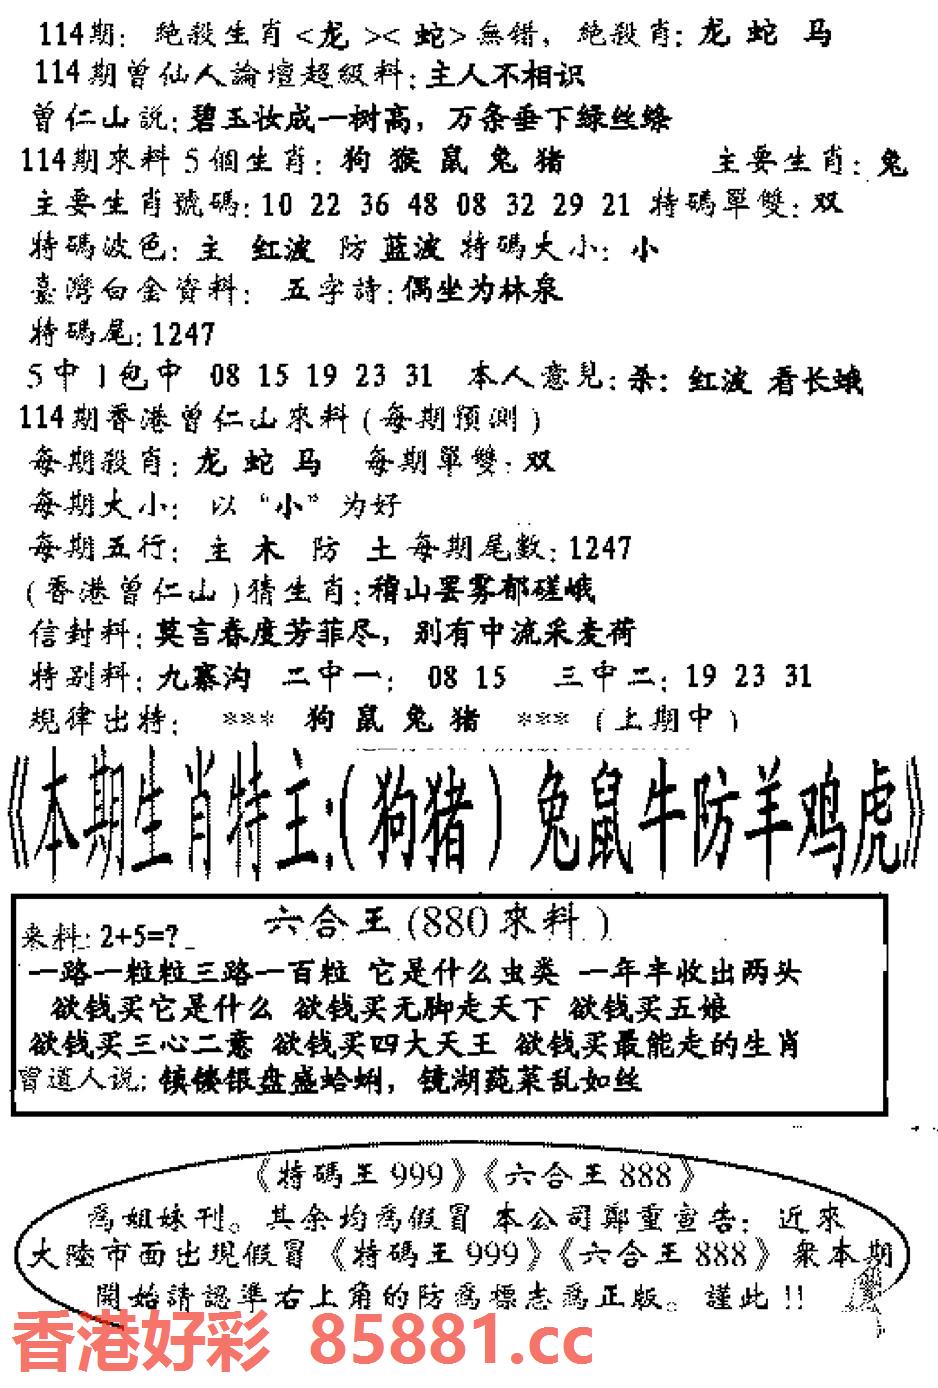 114期: 絶殺生肖<龙 >< 蛇>無错, 絶殺肖: 龙 蛇 马
114期曾仙人論壇超級料: 主人不相识
曾仁山説: 碧玉妆成一树高, 万条垂下绿丝绦
114期來料 5個生肖: 狗 猴 鼠 兔 猪 主要生肖: 兔
主要生肖號碼: 10 22 36 48 08 32 29 21 特碼單雙: 双
特碼波色: 主 红波 防 蓝波 特碼大小: 小
臺灣白金資料: 五字詩: 偶坐为林泉
特碼尾: 1247
5中1包中 08 15 19 23 31 本人意見: 杀: 红波 看长蛾
114期香港曾仁山來料 (每期預測)
每期殺肖: 龙 蛇 马 每期單雙: 双
每期大小: 以“小”为好
每期五行: 主 木 防 土 每期尾数: 1247
(香港曾仁山)猜生肖: 稽山罢雾郁磋峨
信封料: 莫言春度芳菲尽, 别有中流采麦荷
特别料: 九寨沟 二中一: 08 15 三中二: 19 23 31
規律出特: *** 狗 鼠 兔 猪 *** (上期中)
《本期生肖特主:(狗猪)兔鼠牛防羊鸡虎》
六合王(880來料)
来料: 2+5=?
一路一粒粒三路一百粒 它是什么虫类 一年丰收出两头
欲钱买它是什么 欲钱买无脚走天下 欲钱买五娘
欲钱买三心二意 欲钱买四大天王 欲钱买最能走的生肖
曾道人说: 镇楼银盘盛蛤蜊, 镜湖莼菜乱如丝
《特碼王999》《六合王888》
爲姐妹刊。其余均爲假冒 本公司鄭重宣告: 近來
大陸市面出現假冒《特碼王999》《六合王888》衆本期
開始請認準右上角的防爲標志爲正版。謹此!!
香港好彩 85881.cc